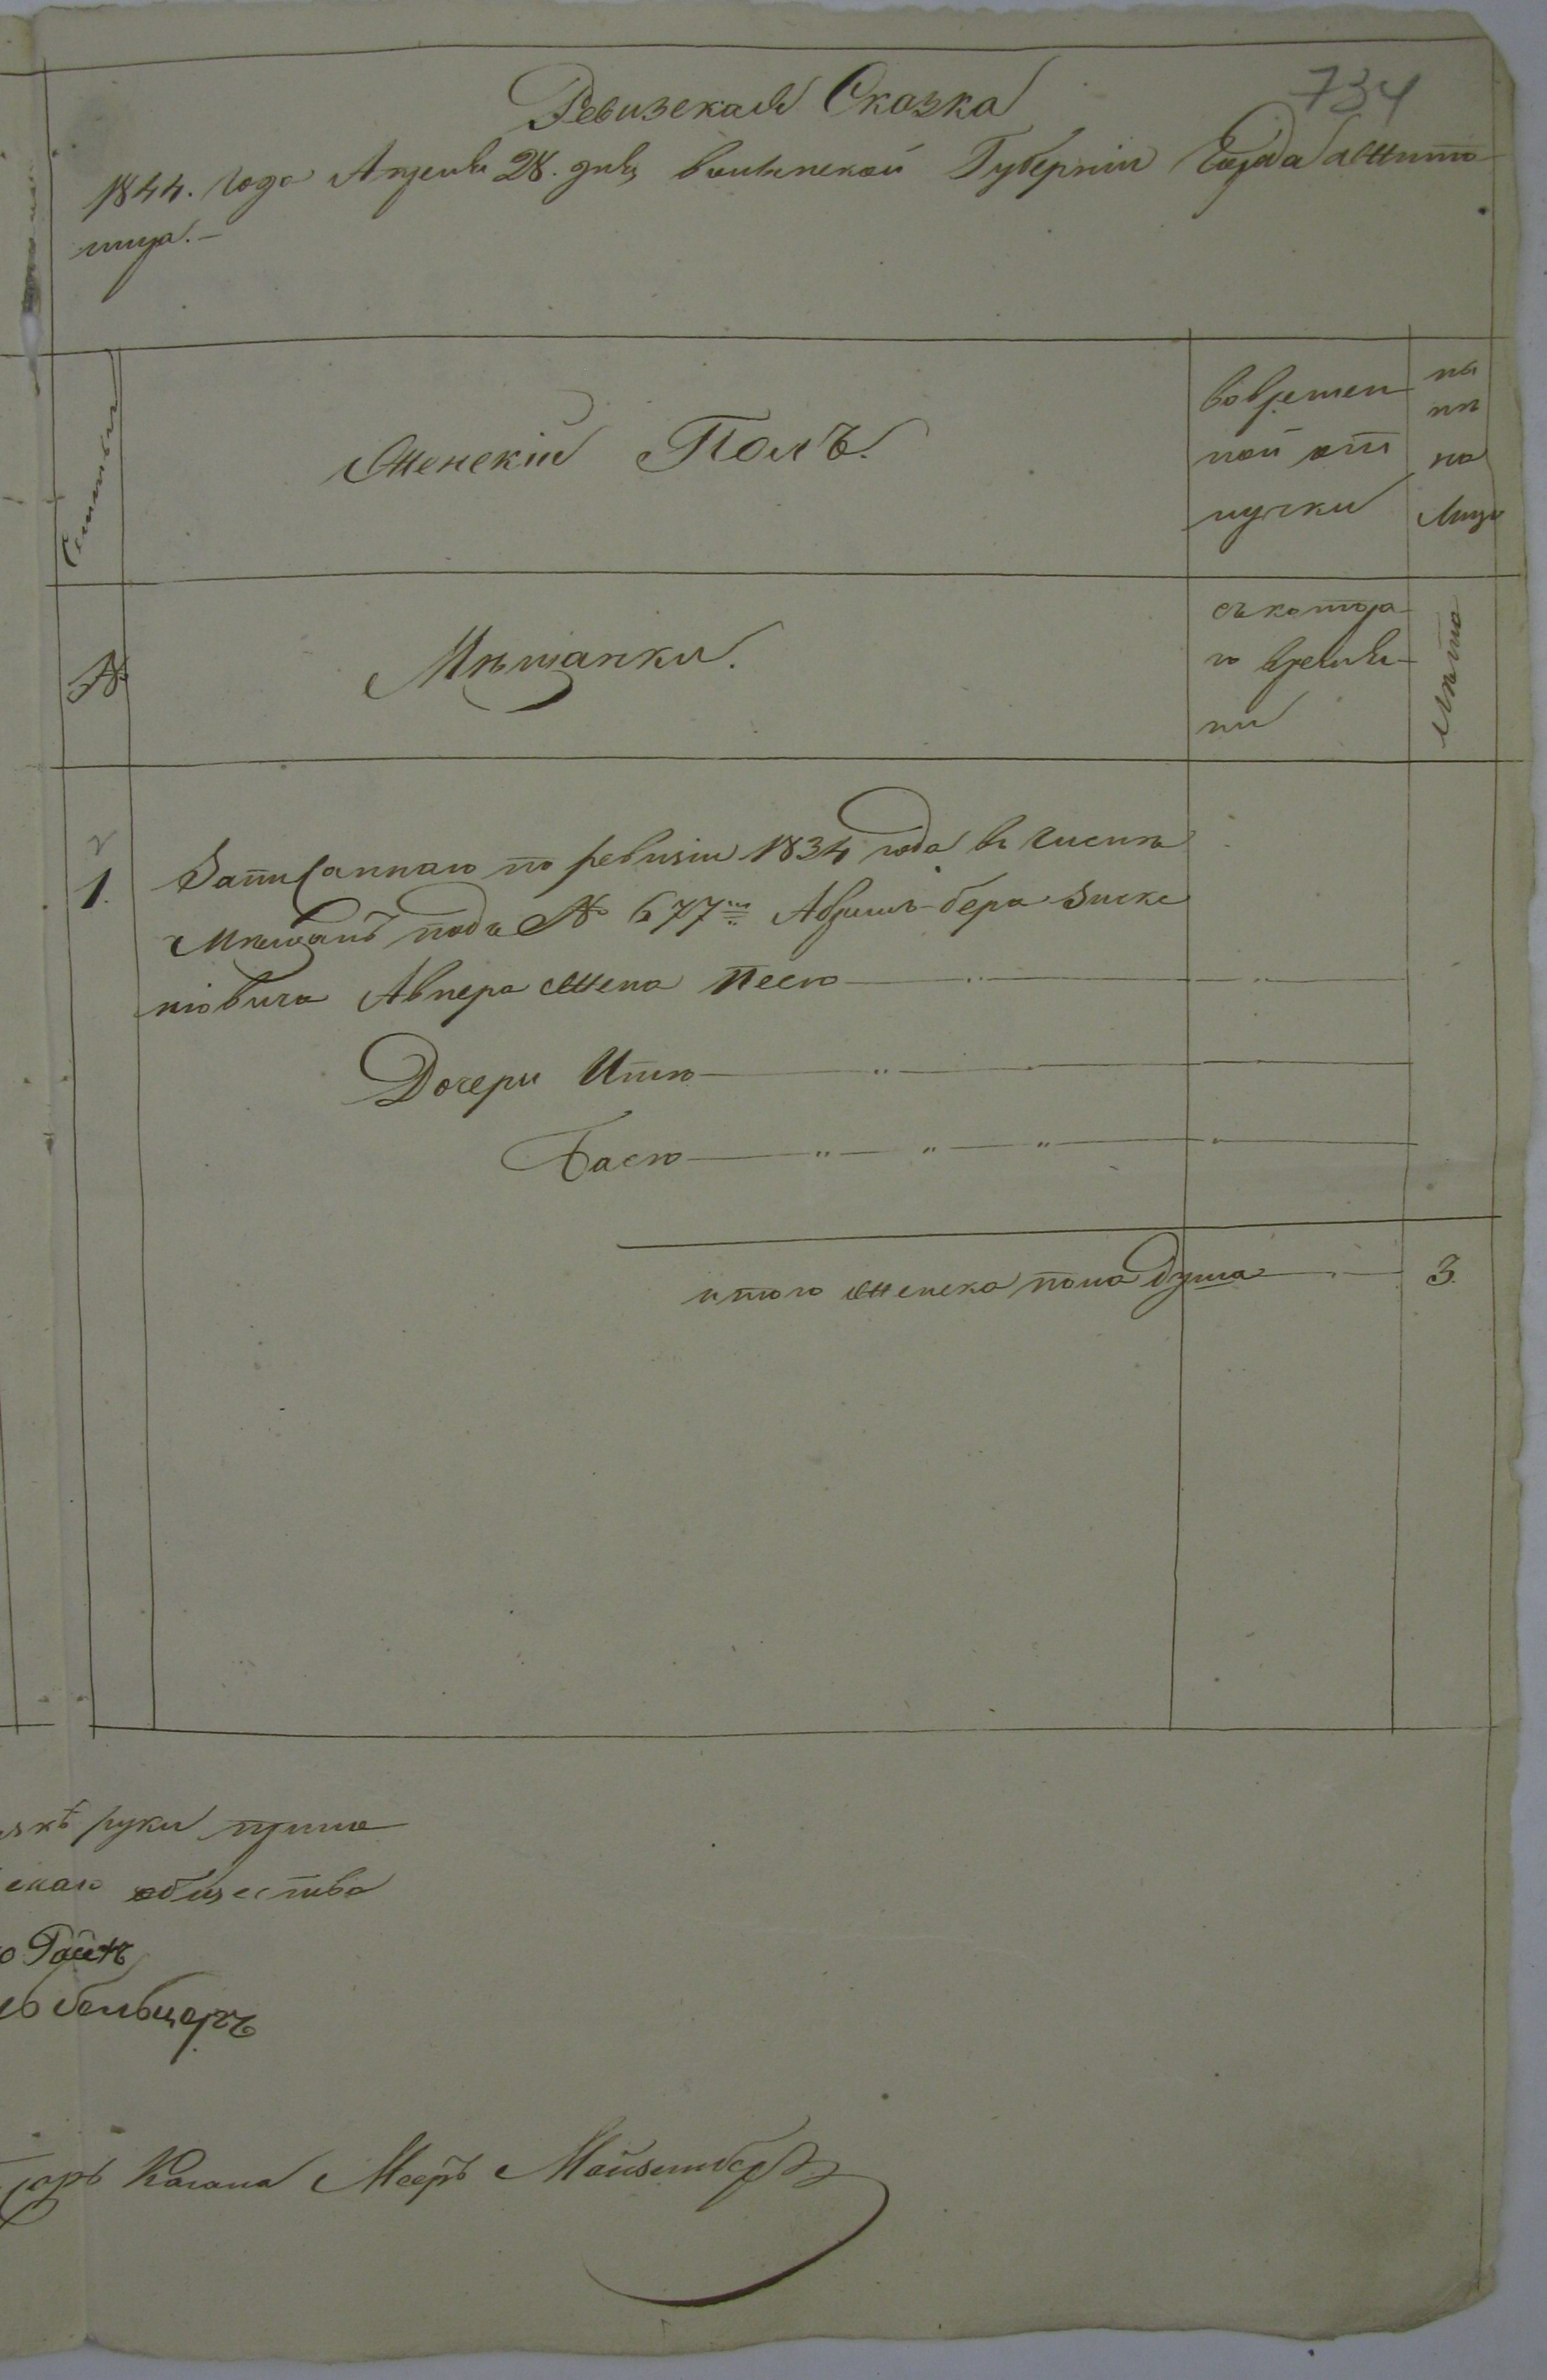 734
Ревизская Сказка
1844. года Апреля 28. дня волынской Губернии Города Жито-
мира.-
Семьи
Женский Полъ.
вовремен-
ной от
лучки
ны
не
на
лицо
№
Мѣщанки.
съ котора-
го време-
ни
лѣта
1.
Записаннаго по ревизіи 1834 года въ числѣ
Мѣщанъ подъ № 677 Абрумъ-бера Зиске
левича Авнера Жена Песя
Дочери Итля
Бася
итого женска пола душъ 3.
руки прило
скаго общества
Гойхъ
Кагала Мееръ Мойзенбергъ